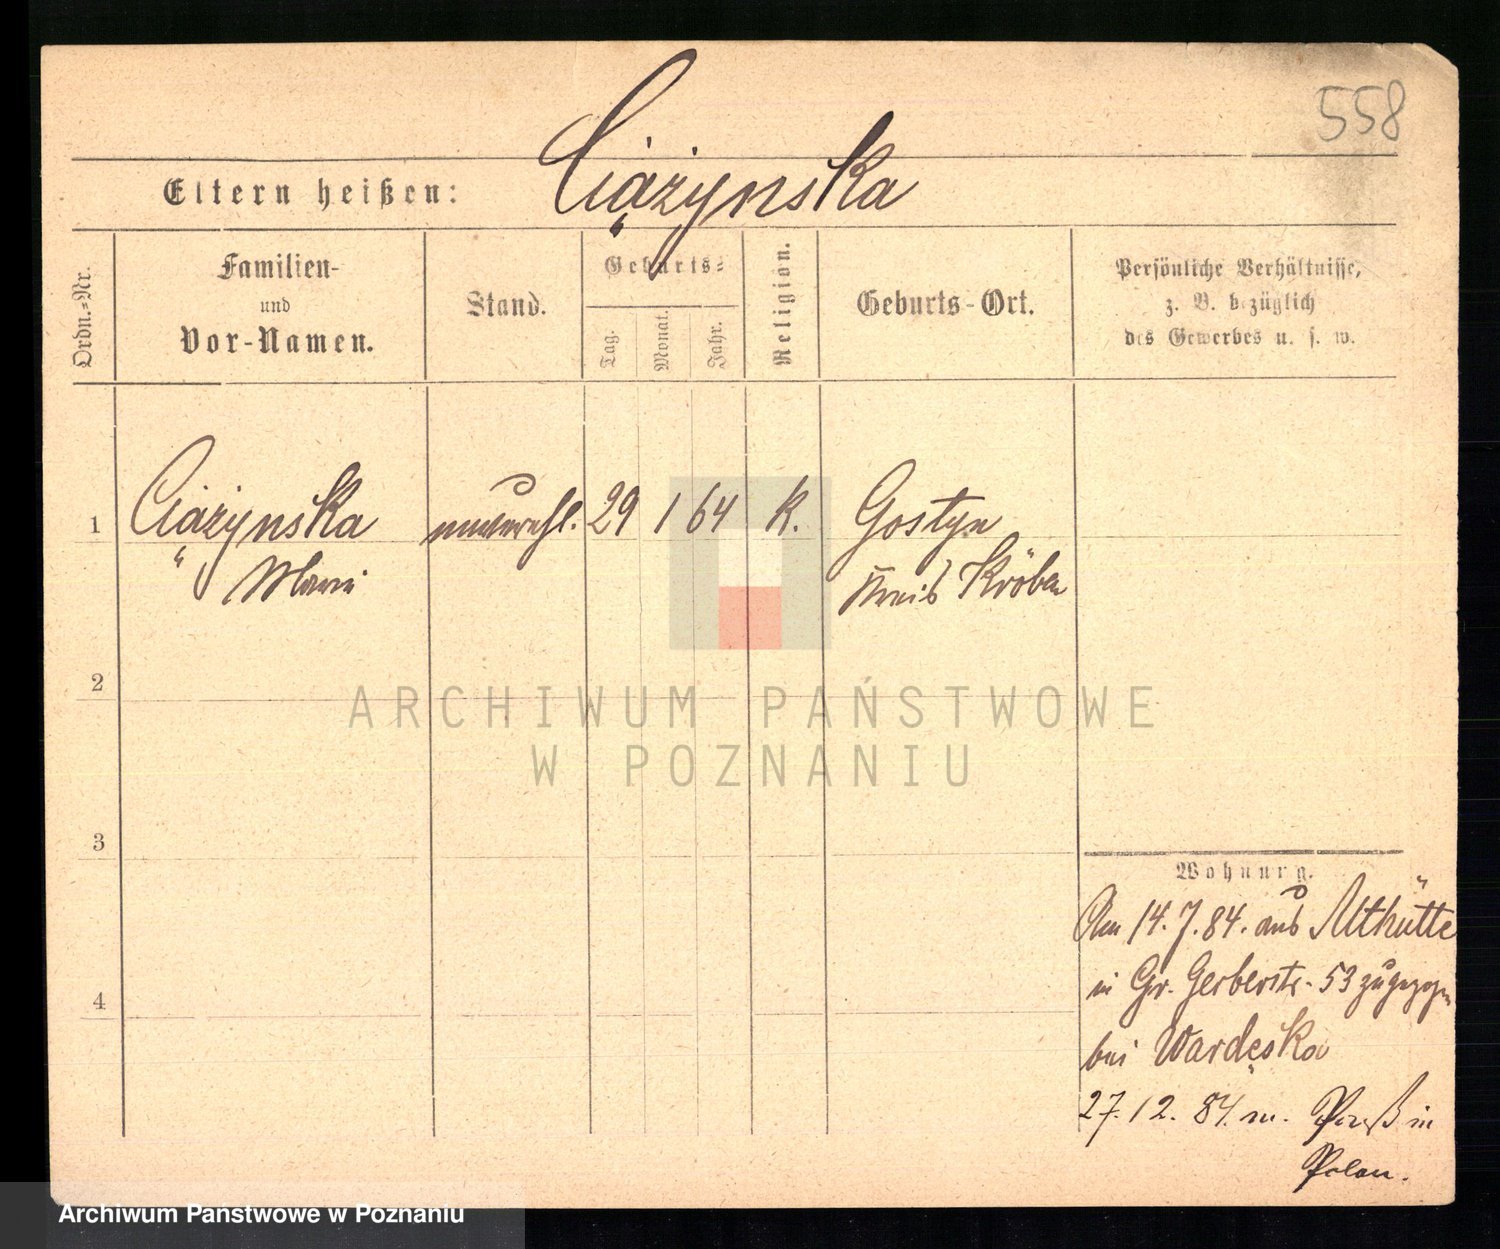 558
Ciążynska
Eltern heißen:
Ordn.-Nr.
Familien-
und
Vor-Namen.
Stand.
Geburts-
Tag.
Monat.
Jahr.
Religion.
Geburts-Ort.
Persönliche Verhältnisse,
z. B. bezüglich
des Gewerbes u. s. w.
1 Ciążynska unverehl. 29 1 64 K. Gostyn
Marie Kreis Kröben
2
ARCHIWUM PAŃSTWOWE
W POZNANIU
3
Wohnung.
Am 14.7.84. aus Althütte
in Gr. Gerberstr. 53 zugezogen
4
bei
27.12.84. n. in
Polen.
Archiwum Państwowe w Poznaniu